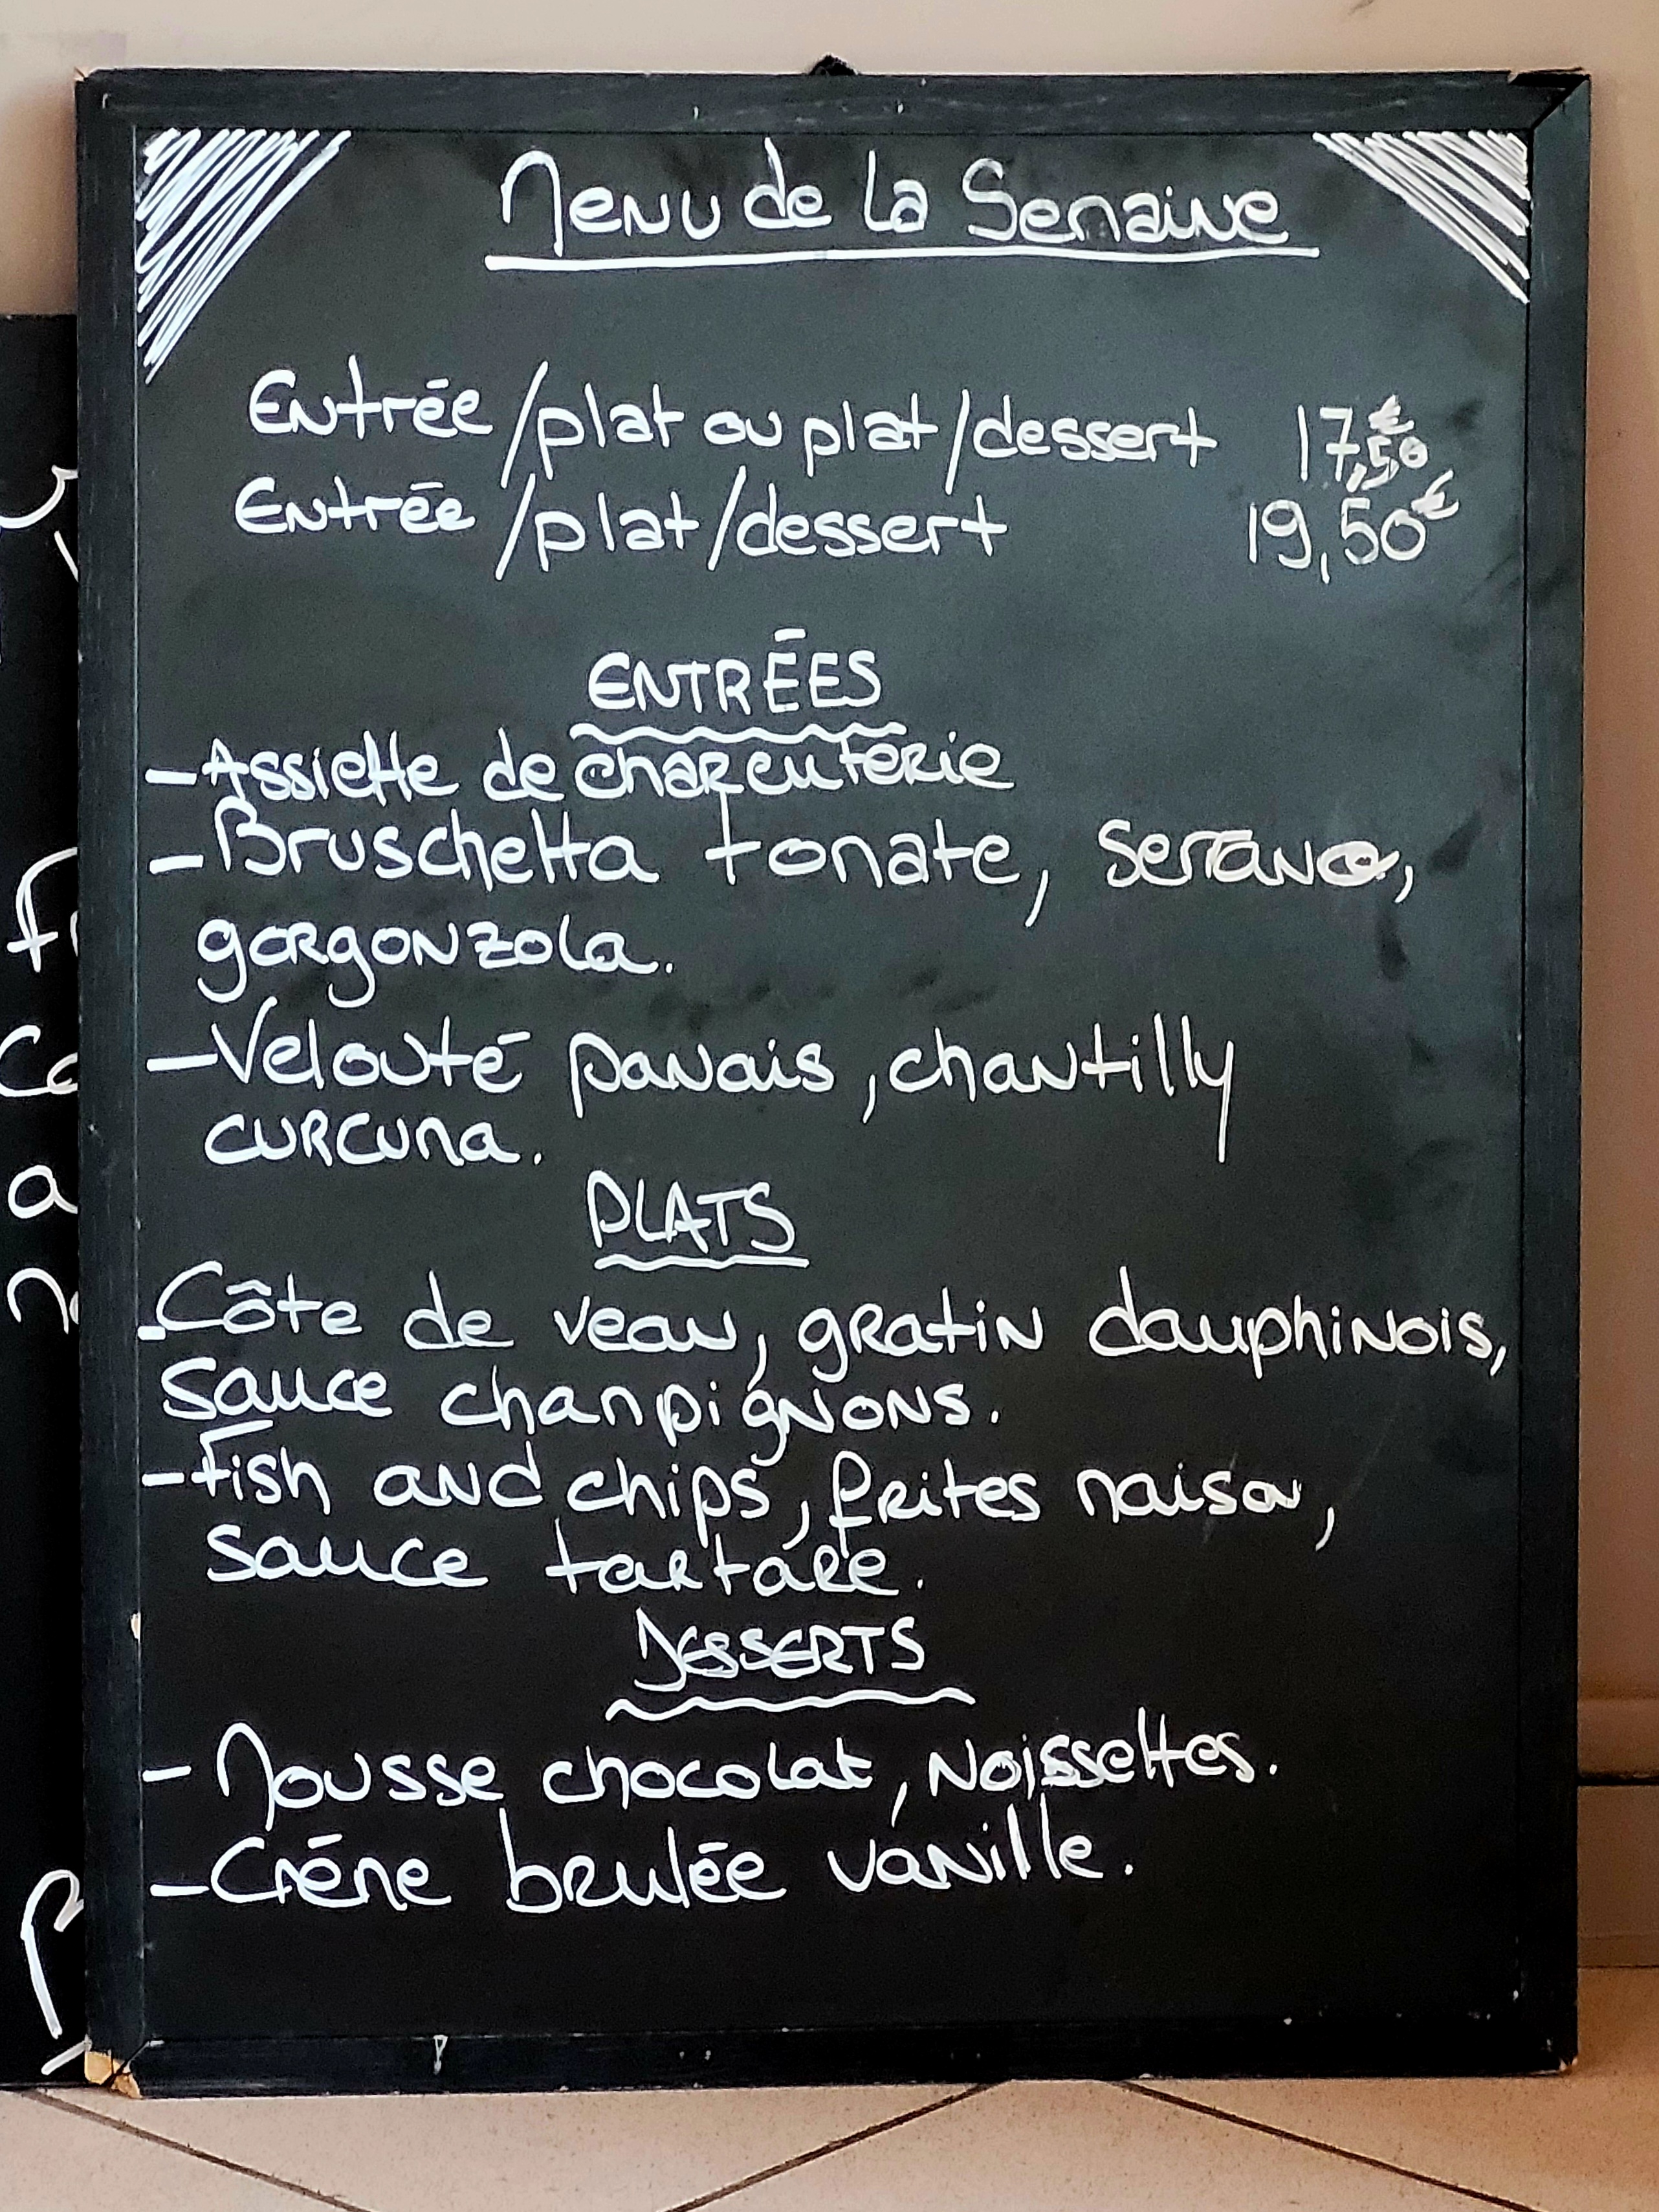 Menu de la Semaine
Entrée/plat ou plat/dessert 17,50€
Entrée/plat/dessert 19,50€
ENTRÉES
- Assiette de charcuterie
- Bruschetta tomate, serrano,
gorgonzola.
- Velouté panais, chantilly
curcuma.
PLATS
- Côte de veau, gratin dauphinois,
sauce champignons.
- Fish and chips, frites maison,
sauce tartare.
DESSERTS
- Mousse chocolat, Noissettes.
- Créme brulée vanille.